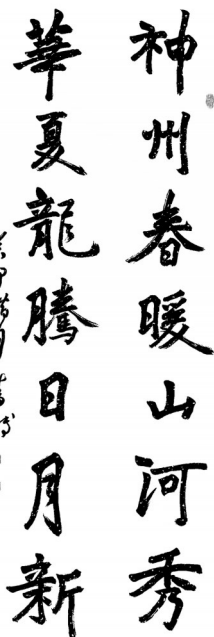 神州春暖山河秀
華夏龍騰日月新